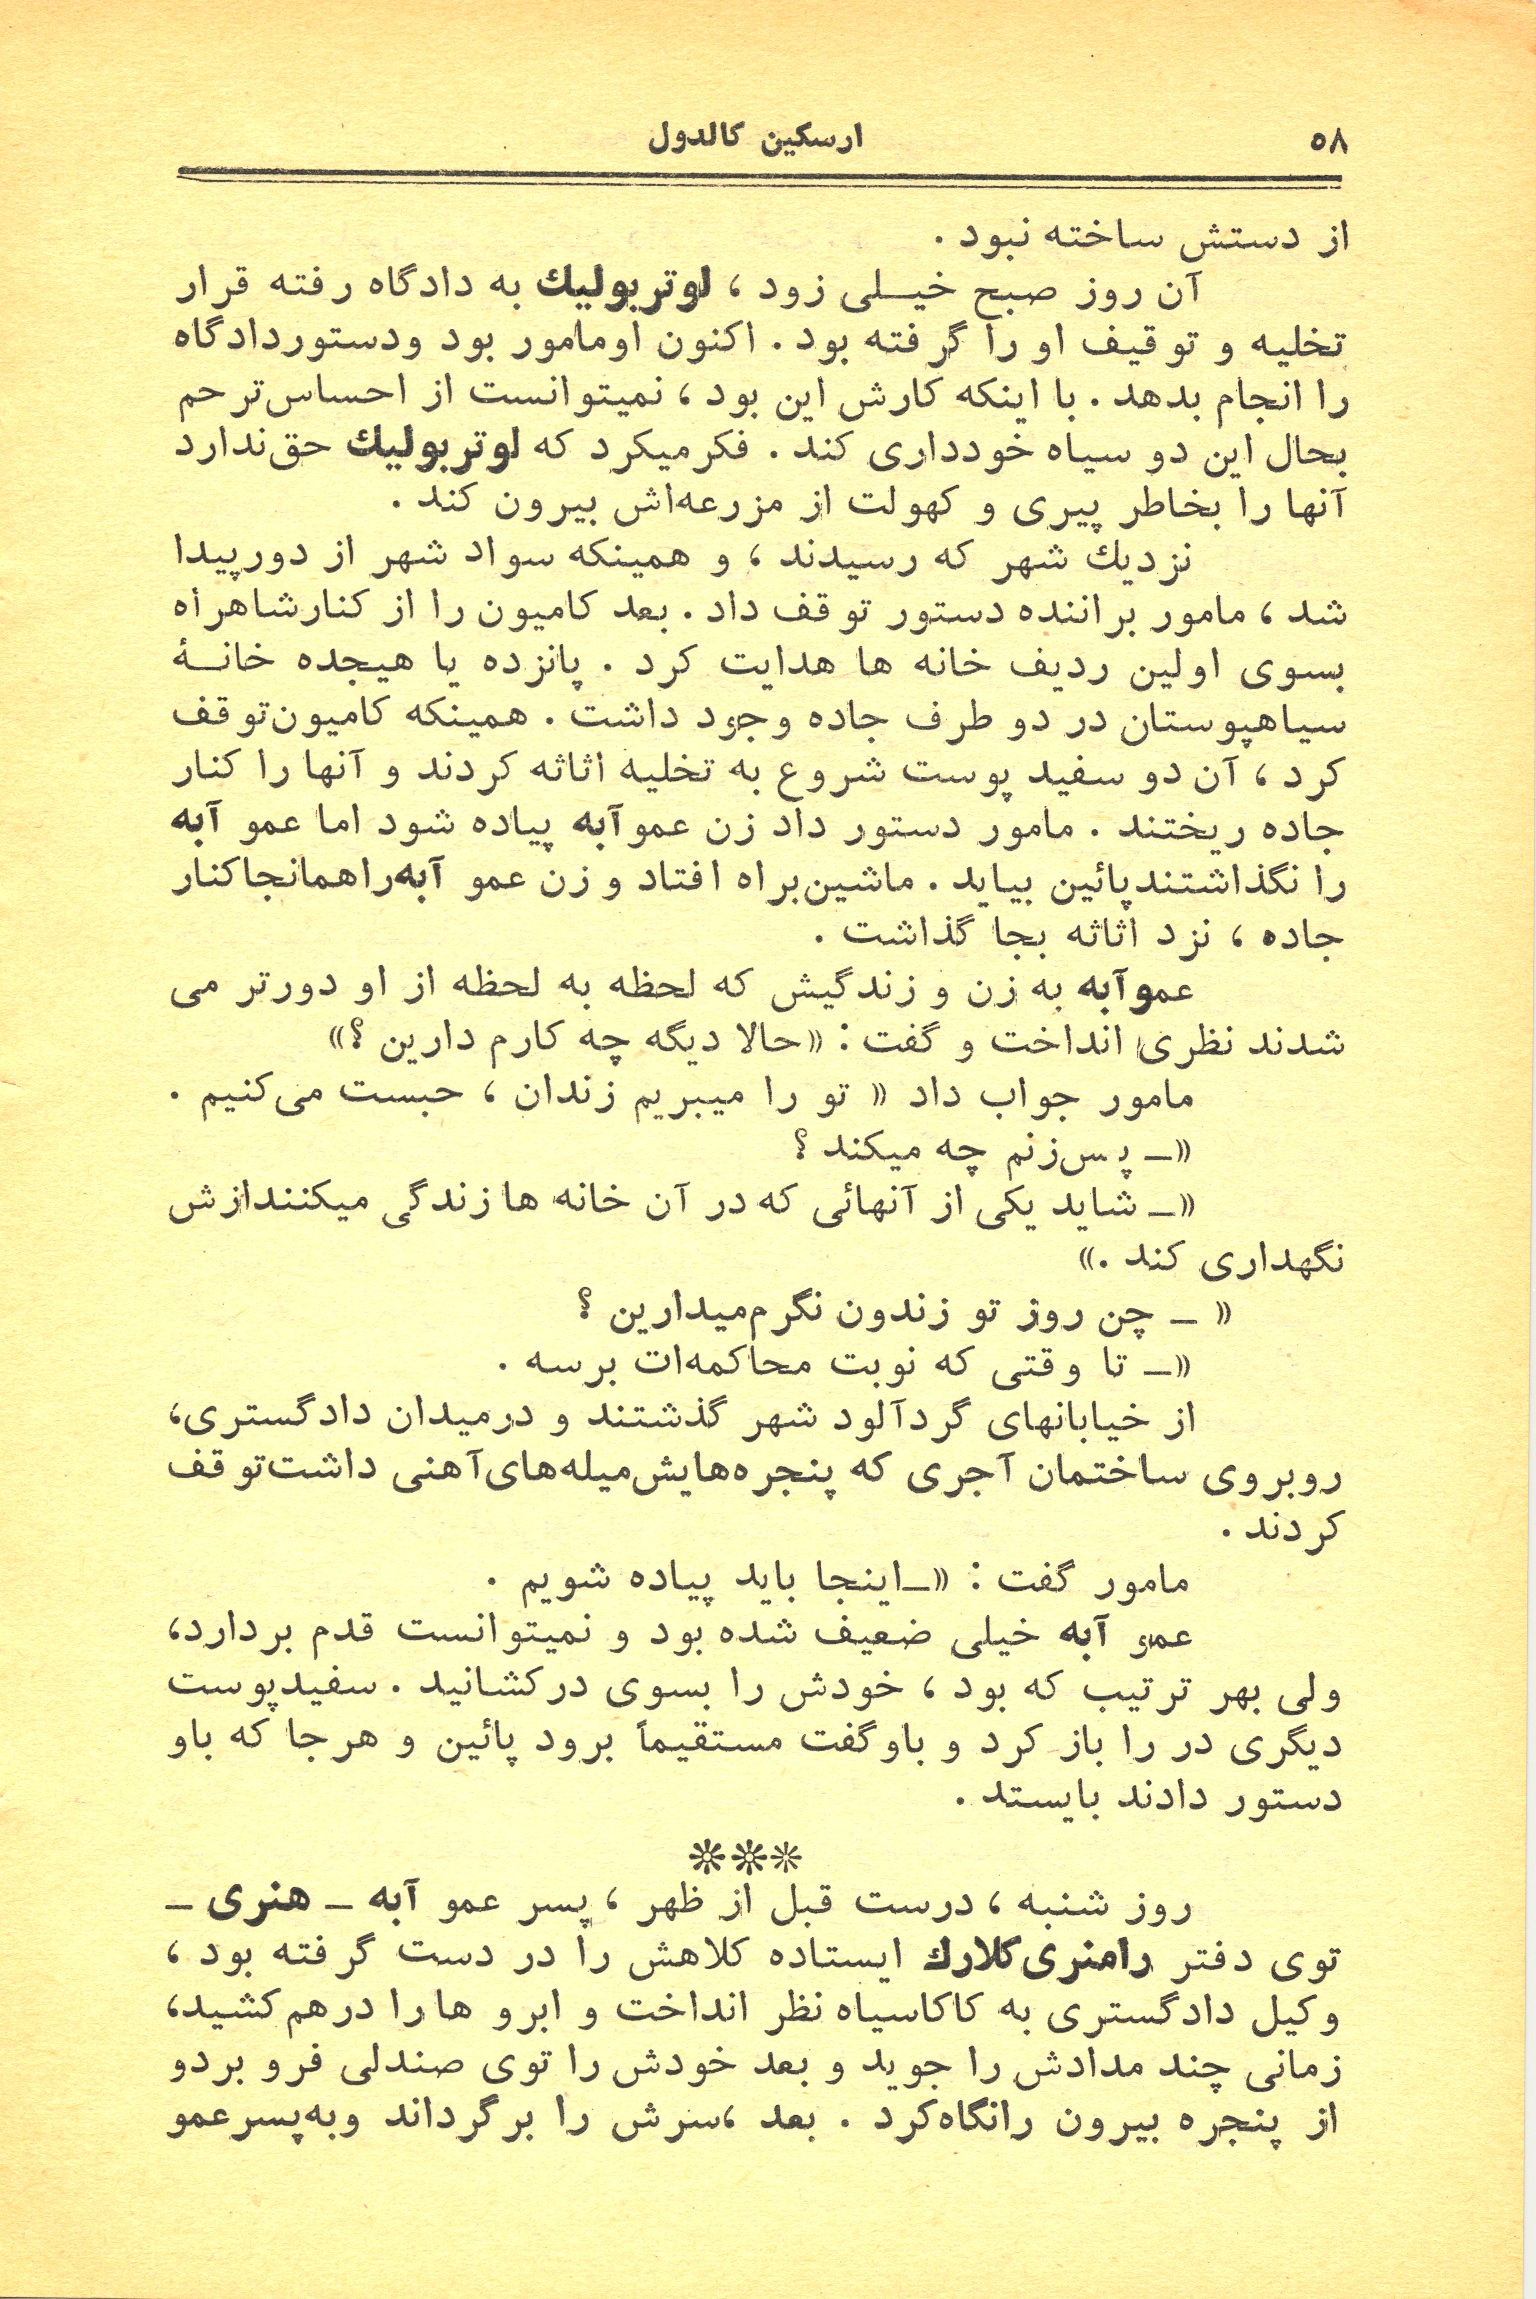 ۵۸
ارسکین کالدول
از دستش ساخته نبود .
آن روز صبح خیلی زود ، لوتربولیك به دادگاه رفته قرار
تخلیه و توقیف او را گرفته بود . اکنون اومامور بود ودستوردادگاه
را انجام بدهد . با اینکه کارش این بود ، نمیتوانست از احساس‌ترحم
بحال این دو سیاه خودداری کند . فکرمیکرد که لوتربولیك حق‌ندارد
آنها را بخاطر پیری و کهولت از مزرعه‌اش بیرون کند .
نزدیك شهر که رسیدند ، و همینکه سواد شهر از دورپیدا
شد ، مامور براننده دستور توقف داد . بعد کامیون را از کنارشاهراه
بسوی اولین ردیف خانه ها هدایت کرد . پانزده یا هیجده خانهٔ
سیاهپوستان در دو طرف جاده وجود داشت . همینکه کامیون‌توقف
کرد ، آن دو سفید پوست شروع به تخلیه اثاثه کردند و آنها را کنار
جاده ریختند . مامور دستور داد زن عموآبه پیاده شود اما عمو آبه
را نگذاشتندپائین بیاید . ماشین‌براه افتاد و زن عمو آبه‌راهمانجاکنار
جاده ، نزد اثاثه بجا گذاشت .
عموآبه به زن و زندگیش که لحظه به لحظه از او دورتر می
شدند نظری انداخت و گفت : «حالا دیگه چه کارم دارین ؟»
مامور جواب داد « تو را میبریم زندان ، حبست می‌کنیم .
«ـ پس‌زنم چه میکند ؟
«ـ شاید یکی از آنهائی که در آن خانه ها زندگی میکنندازش
نگهداری کند .»
« ـ چن روز تو زندون نگرم‌میدارین ؟
«ـ تا وقتی که نوبت محاکمه‌ات برسه .
از خیابانهای گردآلود شهر گذشتند و درمیدان دادگستری،
روبروی ساختمان آجری که پنجره‌هایش‌میله‌های‌آهنی داشت‌توقف
کردند .
مامور گفت : «ـاینجا باید پیاده شویم .
عمو آبه خیلی ضعیف شده بود و نمیتوانست قدم بردارد،
ولی بهر ترتیب که بود ، خودش را بسوی درکشانید . سفیدپوست
دیگری در را باز کرد و باوگفت مستقیماً برود پائین و هرجا که باو
دستور دادند بایستد .
***
روز شنبه ، درست قبل از ظهر ، پسر عمو آبه ـ هنری ـ
توی دفتر رامنری‌کلارك ایستاده کلاهش را در دست گرفته بود ،
وکیل دادگستری به کاکاسیاه نظر انداخت و ابرو هارا درهم‌کشید،
زمانی چند مدادش را جوید و بعد خودش را توی صندلی فرو بردو
از پنجره بیرون رانگاه‌کرد . بعد ،سرش را برگرداند وبه‌پسرعمو